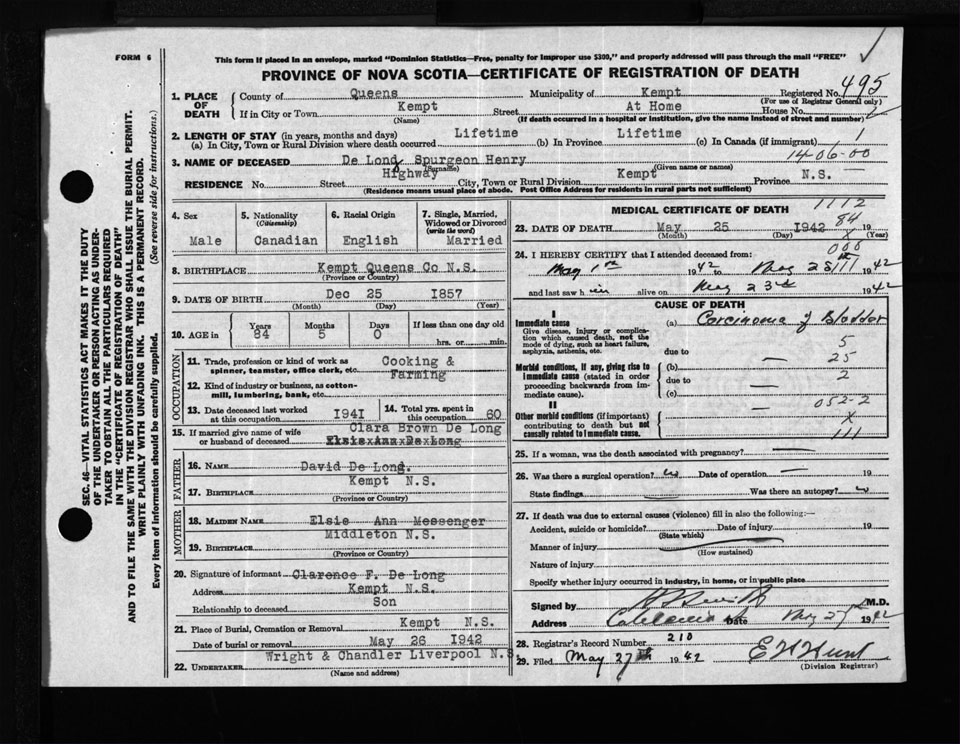 FORM 6
This form if placed in an envelope, marked "Dominion Statistics—Free, penalty for improper use $300," and properly addressed will pass through the mail "FREE"
PROVINCE OF NOVA SCOTIA—CERTIFICATE OF REGISTRATION OF DEATH
SEC. 46—VITAL STATISTICS ACT MAKES IT THE DUTY
OF THE UNDERTAKER OR PERSON ACTING AS UNDER-
TAKER TO OBTAIN ALL THE PARTICULARS REQUIRED
IN THE "CERTIFICATE OF REGISTRATION OF DEATH"
AND TO FILE THE SAME WITH THE DIVISION REGISTRAR WHO SHALL ISSUE THE BURIAL PERMIT.
WRITE PLAINLY WITH UNFADING INK. THIS IS A PERMANENT RECORD.
Every item of information should be carefully supplied. (See reverse side for instructions.)
1. PLACE OF DEATH
County of Queens Municipality of Kempt Registered No. 495
(For use of Registrar General only)
If in City or Town Kempt Street At Home House No.
(Name) (If death occurred in a hospital or institution, give the name instead of street and number)
2. LENGTH OF STAY (in years, months and days)
(a) In City, Town or Rural Division where death occurred Lifetime (b) In Province Lifetime (c) In Canada (if immigrant) 1
14-06-00
3. NAME OF DECEASED De Long Spurgeon Henry
(Surname) (Given name or names)
RESIDENCE No. Street Highway City, Town or Rural Division Kempt Province N.S.
(Residence means usual place of abode. Post Office Address for residents in rural parts not sufficient)
4. Sex Male
5. Nationality (Citizenship) Canadian
6. Racial Origin English
7. Single, Married, Widowed or Divorced (write the word) Married
8. BIRTHPLACE Kempt Queens Co N.S.
(Province or Country)
9. DATE OF BIRTH Dec 25 1857
(Month) (Day) (Year)
10. AGE in Years 84 Months 5 Days 0 If less than one day old hrs. or min.
OCCUPATION
11. Trade, profession or kind of work as spinner, teamster, office clerk, etc. Cooking &
Farming
12. Kind of industry or business, as cotton-mill, lumbering, bank, etc.
13. Date deceased last worked at this occupation 1941
14. Total yrs. spent in this occupation 60
15. If married give name of wife or husband of deceased Clara Brown De Long
Elsie Ann De Long
FATHER
16. Name David De Long.
17. Birthplace Kempt N.S.
(Province or Country)
MOTHER
18. Maiden Name Elsie Ann Messenger
19. Birthplace Middleton N.S.
(Province or Country)
20. Signature of informant Clarence F. De Long
Address Kempt N.S.
Relationship to deceased Son
21. Place of Burial, Cremation or Removal Kempt N.S.
Date of burial or removal May 26 1942
22. UNDERTAKER Wright & Chandler Liverpool N.S.
(Name and address)
MEDICAL CERTIFICATE OF DEATH 1112
84
23. DATE OF DEATH May 25 1942 19
(Month) (Day) (Year)
X
000
24. I HEREBY CERTIFY that I attended deceased from:
May 1st 1942 to May 25 111 1942
and last saw him alive on May 23rd 1942
CAUSE OF DEATH
I
Immediate cause
Give disease, injury or complication which caused death, not the mode of dying, such as heart failure, asphyxia, asthenia, etc.
(a) Carcinoma of Bladder
due to 5
Morbid conditions, if any, giving rise to immediate cause (stated in order proceeding backwards from immediate cause).
(b) — 25
due to 2
(c) —
II
Other morbid conditions (if important) contributing to death but not causally related to immediate cause.
— 052-2
X
111
25. If a woman, was the death associated with pregnancy? —
26. Was there a surgical operation? Date of operation — 19
State findings Was there an autopsy?
27. If death was due to external causes (violence) fill in also the following:—
Accident, suicide or homicide? Date of injury 19
(State which)
Manner of injury
(How sustained)
Nature of injury
Specify whether injury occurred in industry, in home, or in public place
Signed by M.D.
Address Caledonia Date May 27 1942
28. Registrar's Record Number 210
29. Filed May 27th 1942 E H Hunt
(Division Registrar)